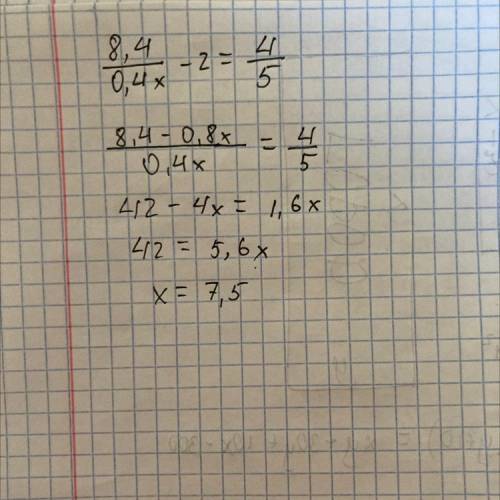 8,4/0,4x - 2 = 4/5
8,4 - 0,8x/0,4x = 4/5
42 - 4x = 1,6x
42 = 5,6x
x = 7,5